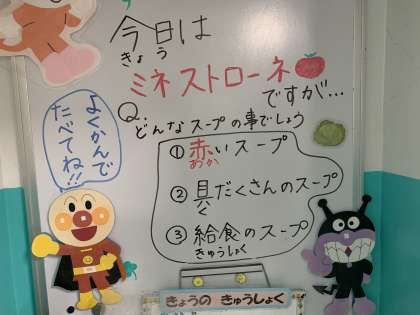 今日は
きょう
ミネストローネ
ですが…
Q.
どんなスープの事でしょう
よくかんで
たべてね!!
① 赤いスープ
あか
② 具だくさんのスープ
ぐ
③ 給食のスープ
きゅうしょく
きょうの きゅうしょく